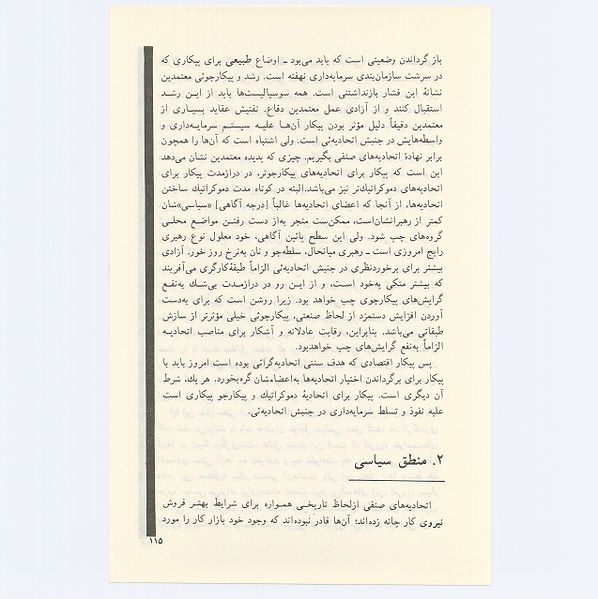 بازگرداندن وضعیتی است که باید می‌بود ـ اوضاع طبیعی برای پیکاری که
در سرشت سازمان‌بندی سرمایه‌داری نهفته است. رشد و پیکارجوئی معتمدین
نشانهٔ این فشار بازنداشتنی است. همه سوسیالیست‌ها باید از این رشد
استقبال کنند و از آزادی عمل معتمدین دفاع. تفتیش عقاید بسیاری از
معتمدین دقیقاً دلیل مؤثر بودن پیکار آن‌ها علیه سیستم سرمایه‌داری و
واسطه‌هایش در جنبش اتحادیه‌ئی است. ولی اشتباه است که آن‌ها را همچون
برابر نهادهٔ اتحادیه‌های صنفی بگیریم. چیزی که پدیده معتمدین نشان می‌دهد
این است که پیکار برای اتحادیه‌های پیکارجوتر، در درازمدت پیکار برای
اتحادیه‌های دموکراتیك‌تر نیز می‌باشد.البته در کوتاه مدت دموکراتیك ساختن
اتحادیه‌ها، از آنجا که اعضای اتحادیه‌ها غالباً [درجه آگاهی] «سیاسی»شان
کمتر از رهبرانشان‌است، ممکن‌ست منجر به‌از دست رفتن مواضع محلی
گروه‌های چپ شود. ولی این سطح پائین آگاهی، خود معلول نوع رهبری
رایج امروزی است ـ رهبری میانحال، سلطه‌جو و نان به‌نرخ روز خور. آزادی
بیشتر برای برخوردنظری در جنبش اتحادیه‌ئی الزاماً طبقهٔ‌کارگری می‌آفریند
که بیشتر متکی به‌خود است، و از این رو در درازمدت بی‌شك به‌نفع
گرایش‌های پیکارجوی چپ خواهد بود. زیرا روشن است که برای به‌دست
آوردن افزایش دستمزد از لحاظ صنعتی، پیکارجوئی خیلی مؤثرتر از سازش
طبقاتی می‌باشد. بنابراین، رقابت عادلانه و آشکار برای مناصب اتحادیه
الزاماً به‌نفع گرایش‌های چپ خواهدبود.
پس پیکار اقتصادی که هدف سنتی اتحادیه‌گرائی بوده است امروز باید با
پیکار برای برگرداندن اختیار اتحادیه‌ها به‌اعضاءشان گره‌بخورد. هر یك، شرط
آن دیگری است. پیکار برای اتحادیهٔ دموکراتیك و پیکارجو پیکاری است
علیه نفوذ و تسلط سرمایه‌داری در جنبش اتحادیه‌ئی.
۲. منطق سیاسی
اتحادیه‌های صنفی ازلحاظ تاریخی همواره برای شرایط بهتر فروش
نیروی کار چانه زده‌اند؛ آن‌ها قادر نبوده‌اند که وجود خود بازار کار را مورد
۱۱۵